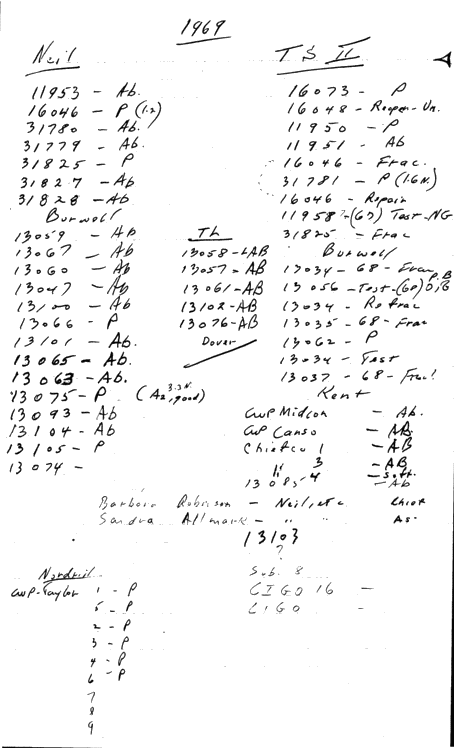 1969
Neil
11953 - Ab.
16046 - P (1.2)
31780 - Ab.
31779 - Ab.
31825 - P
31827 - Ab
31828 - Ab
Burwell
13059 - Ab
13067 - Ab
13060 - Ab
13047 - Ab
13100 - Ab
13066 - P
13101 - Ab.
13065 - Ab.
13063 - Ab.
13075 - P (A2, 3.3 N. good)
13093 - Ab
13104 - Ab
13105 - P
13074 -
TL
13058 - AB
13057 - AB
13061 - AB
13102 - AB
13076 - AB
Dover
TS II
16073 - P
16048 - Reoper - Un.
11950 - P
11951 - Ab
16046 - Frac.
31781 - P (1.6 N.)
16046 - Repair
11958 - (67) Test - NG
31825 - Frac
Burwell
13034 - 68 - Frac
13056 - Test - (60) P.B
13034 - Refrac
13035 - 68 - Frac
13062 - P
13034 - Test
13037 - 68 - Frac!
Kent
GWP Midcon - Ab.
GWP Canso - AB
Chiefco 1 - AB
" 3 - AB
4 - Soft.
13085 - Ab
Barbara Robinson - Neil, etc Chief
Sandra Allmark - " " As.
13103
?
Nordril
GWP-Taylor 1 - P
5 - P
2 - P
3 - P
4 - P
6 - P
7
8
9
Sub. 8
CIGO 16 -
CIGO -